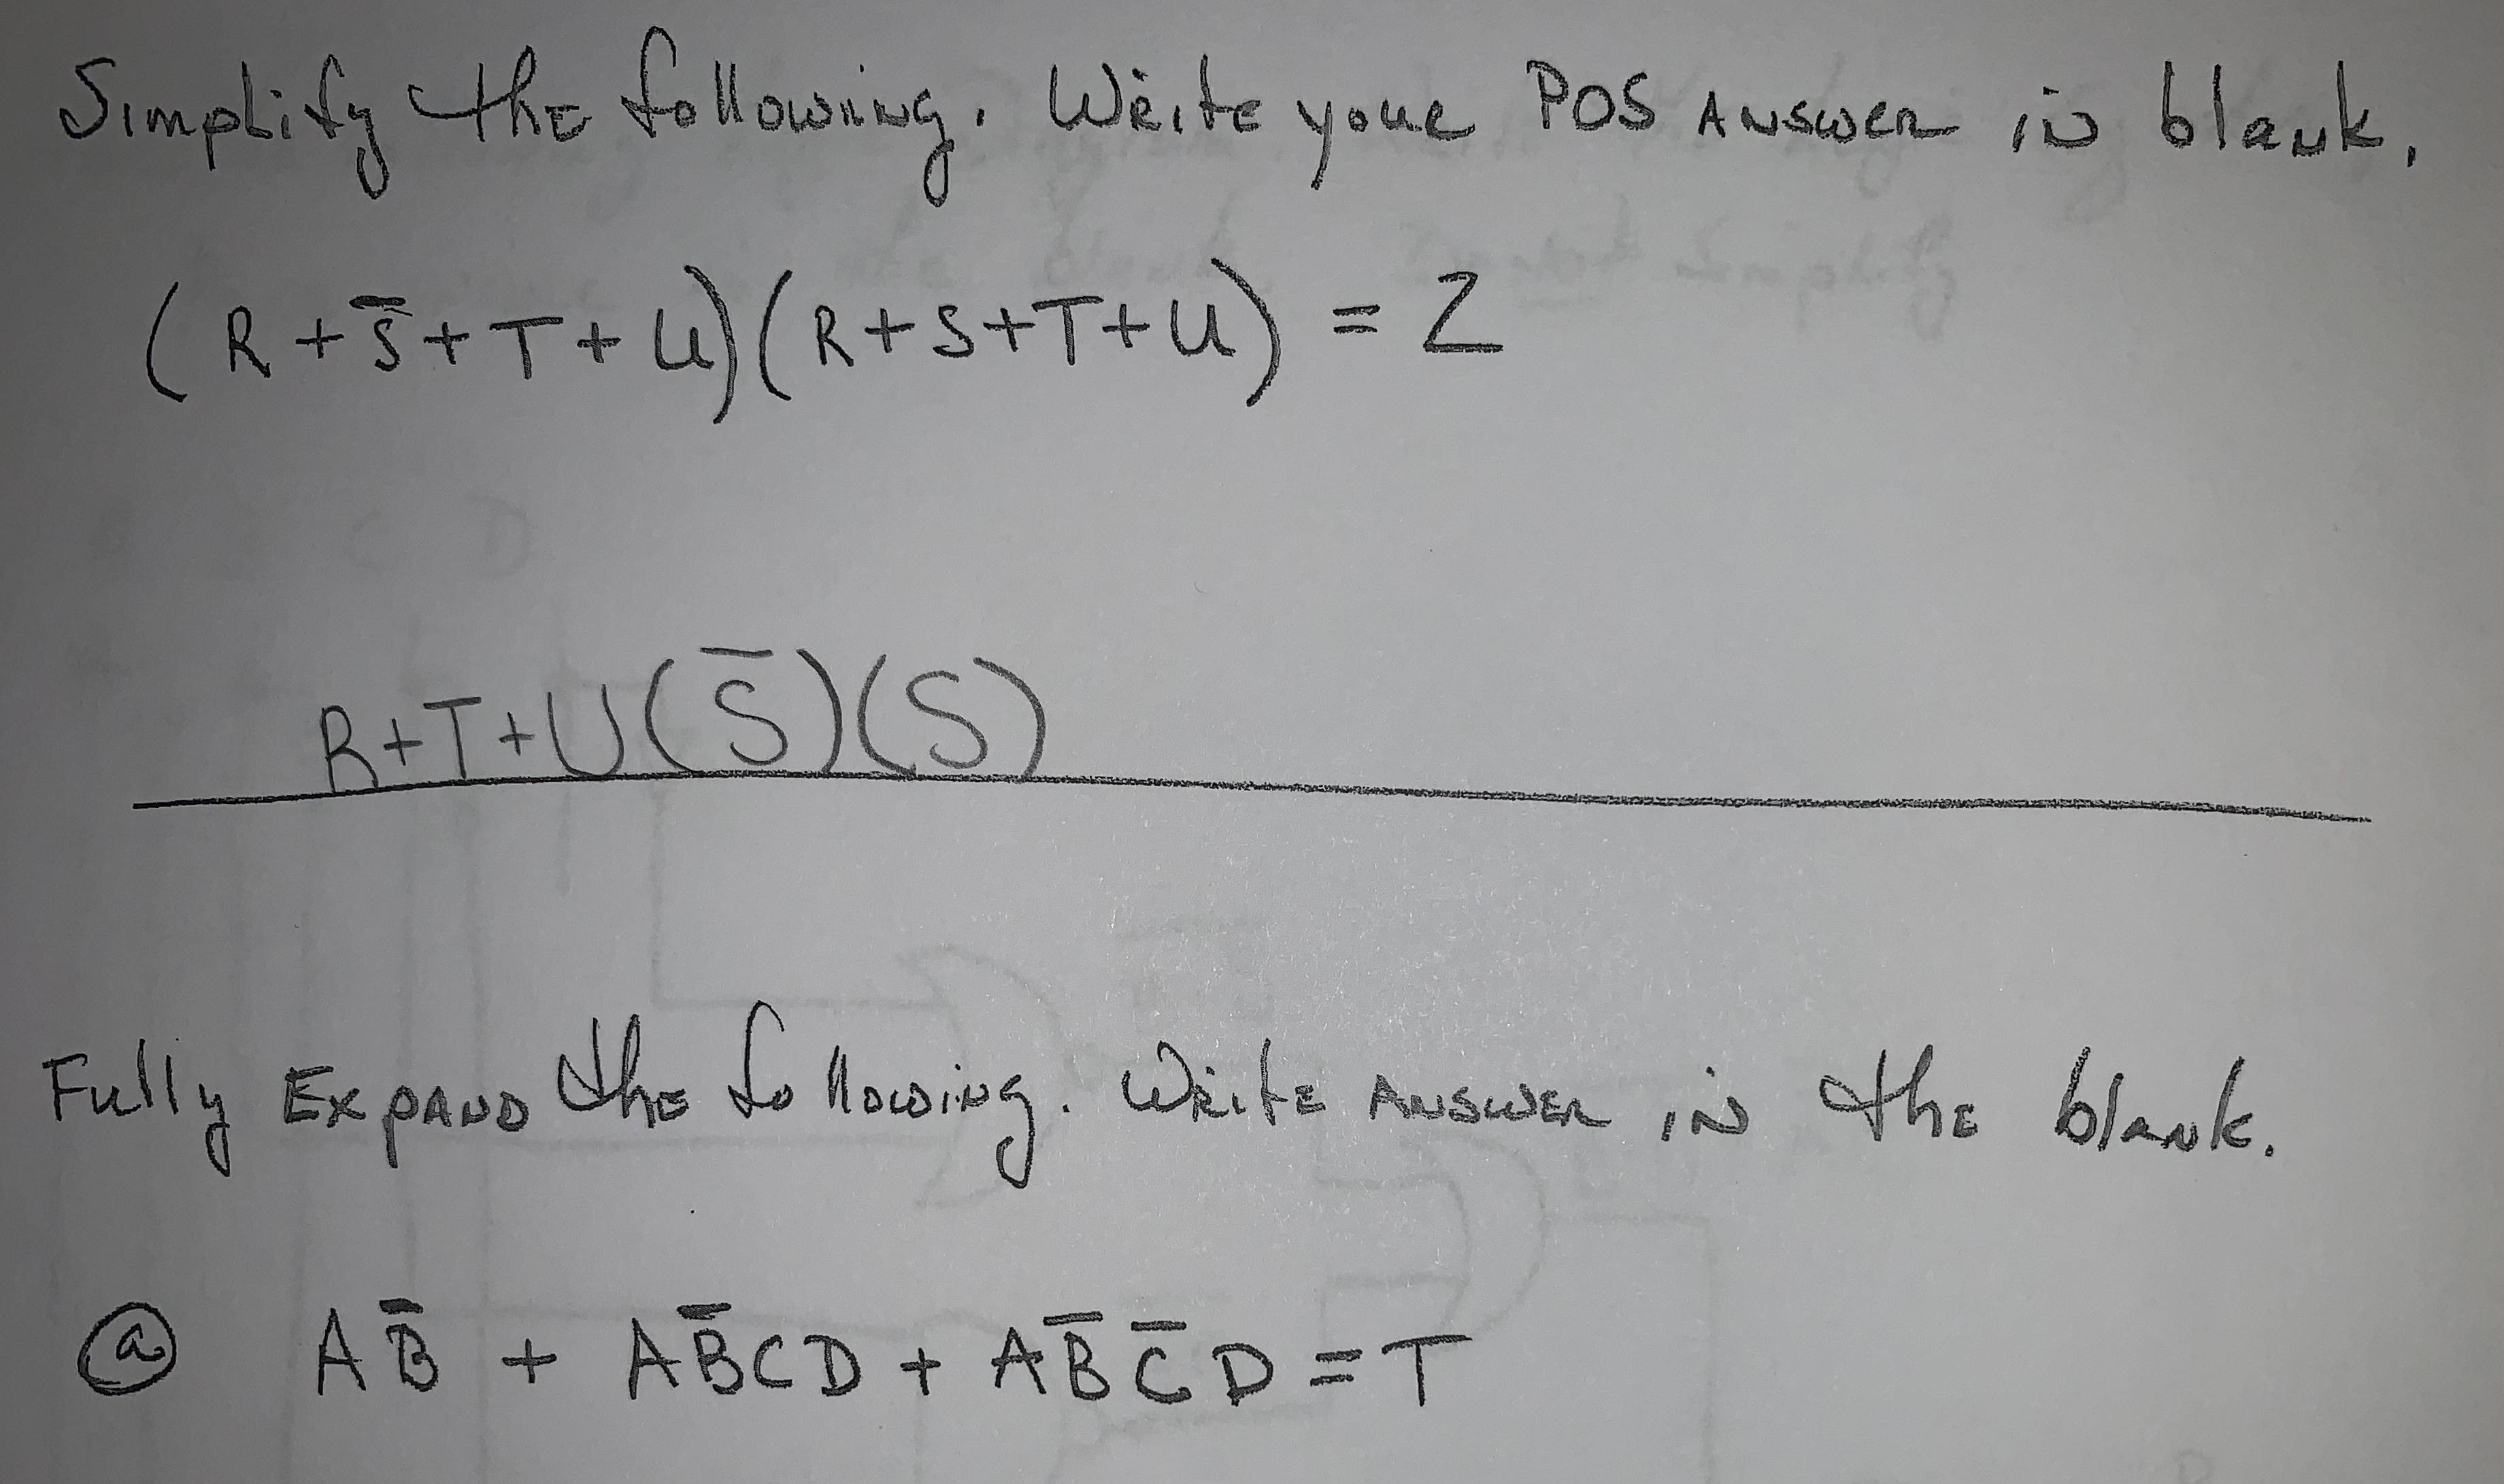 Simplify the following. Write your POS Answer in blank.
(R + S̅ + T + U)(R + S + T + U) = Z
R+T+U(S̅)(S)
Fully Expand the following. Write Answer in the blank.
ⓐ AB̅ + AB̅CD + AB̅C̅D = T